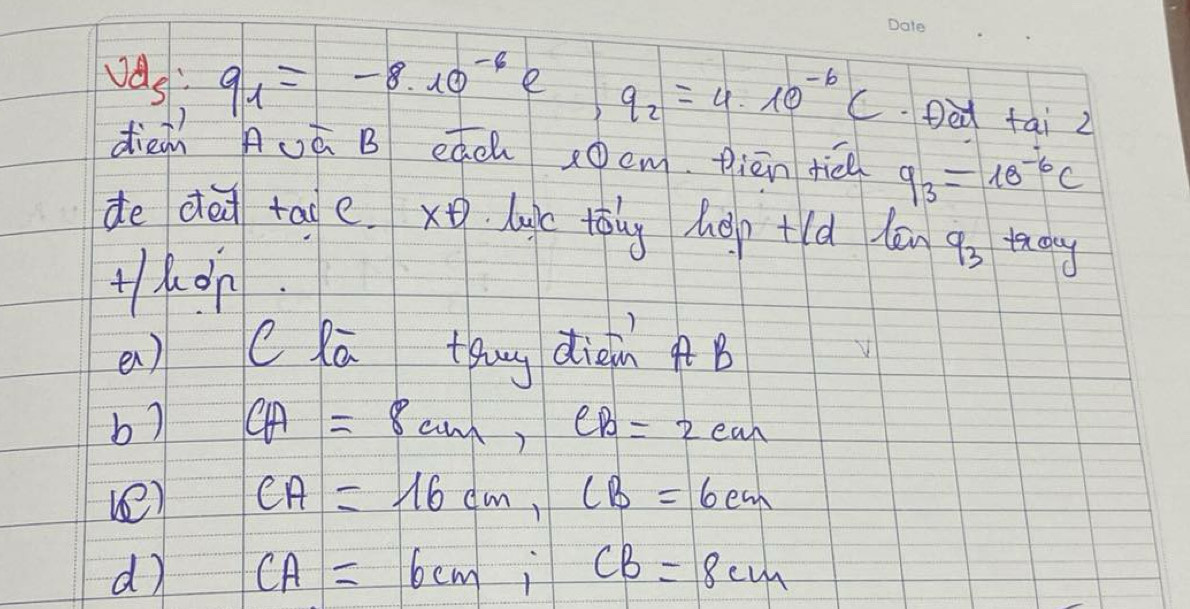 Date
Vd5: q1 = -8.10^-6 C, q2 = 4.10^-6 C. Đặt tại 2
điểm A và B cách 10 cm. Điện tích q3 = 10^-6 C
đc đặt tại C. XĐ. lực tổng hợp t/d lên q3 trong
t/hợp.
a) C là trung điểm AB
b) CA = 8 cm, CB = 2 cm
c) CA = 16 cm, CB = 6 cm
d) CA = 6cm ; CB = 8cm